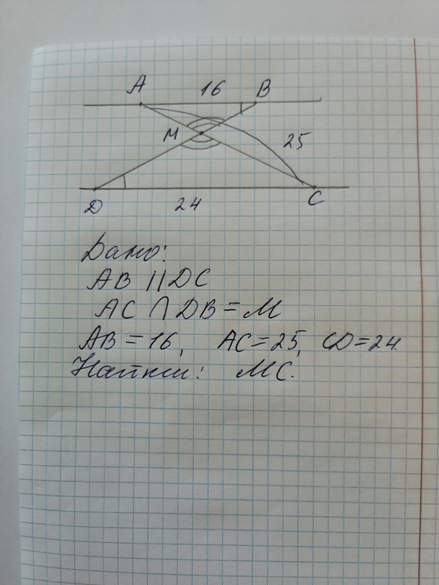 A 16 B
M 25
D 24 C
Дано:
AB || DC
AC ∩ DB = M
AB = 16, AC = 25, CD = 24.
Найти: MC.